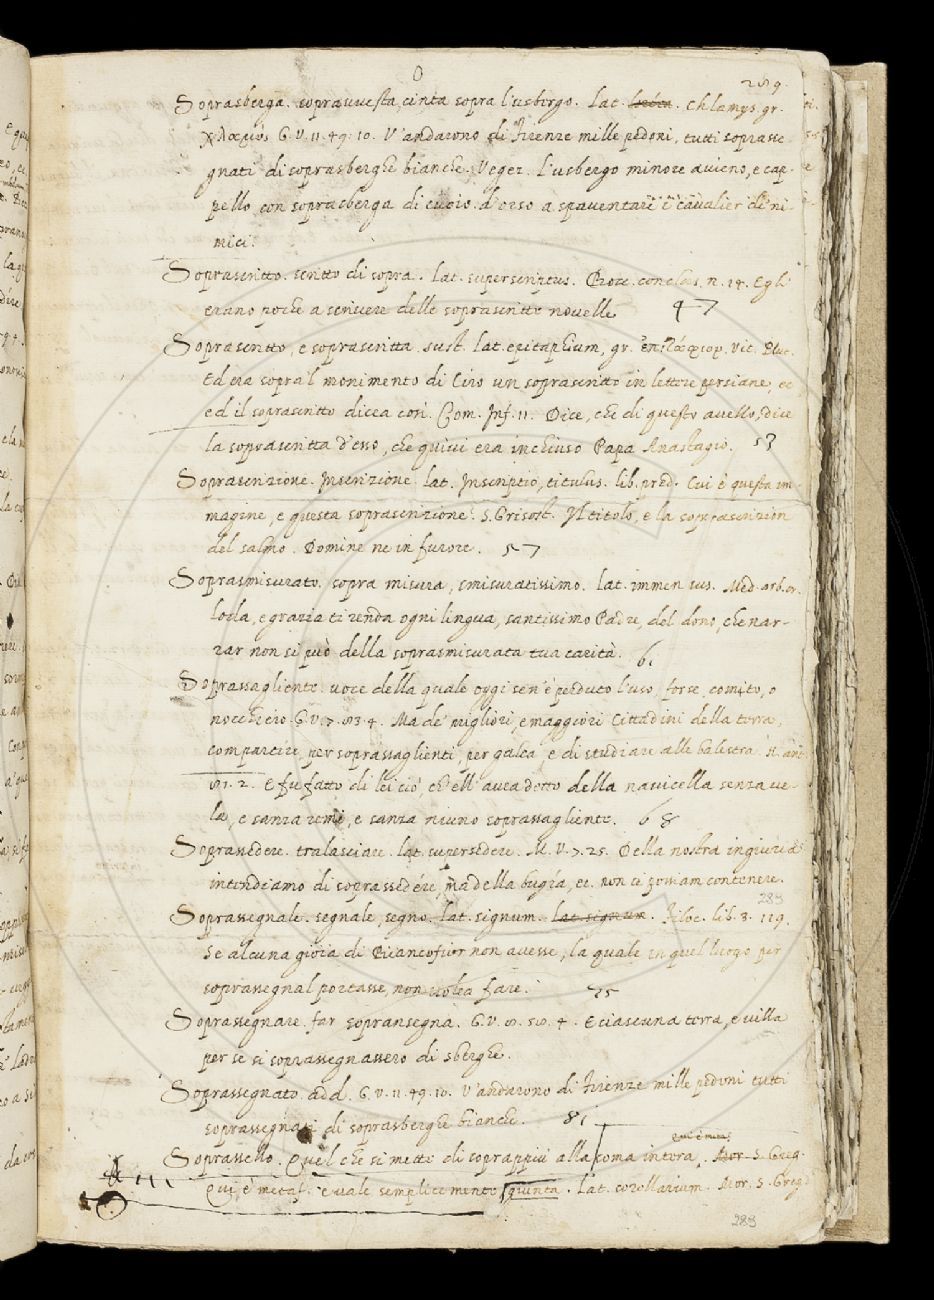 289.
Soprasberga. sopravvesta, cinta sopra l'usbergo. Lat. chlamys. gr.
G. V. 11. 49. 10. V'andarono di Firenze mille pedoni, tutti soprasse-
gnati di soprasberghe bianche. Veget. L'usbergo minore avieno, e cap-
pello con soprasberga di cuoio d'orso a spaventare i cavalier de' ni-
mici.
Soprascritto. scritto di sopra. Lat. superscriptus. conclus. n. 14. Egli
erano poche a scrivere delle soprascritte novelle 47
Soprascritto, e soprascritta. sust. Lat. epitaphium, gr. Vit. Plut.
Ed era sopra 'l monimento di Ciro un soprascritto in lettere persiane, ec
ed il soprascritto dicea così. Com. Inf. 11. Dice, che di questo avello, dice
la soprascritta d'esso, che quivi era inchiuso Papa Anastagio. 53
Soprascrizione. Inscrizione Lat. Inscriptio, titulus. lib. pred. Cui è questa im-
magine, e questa soprascrizione. S. Grisost. Il titolo, e la soprascrizion
del salmo. Domine ne in furore. 57
Soprasmisurato. sopra misura, smisuratissimo. Lat. immensus. Med. arb. cr.
Loda, e grazia ti renda ogni lingua, santissimo Padre, del dono, che nar-
rar non si può della soprasmisurata tua carità. 61
Soprassagliente. voce della quale oggi sen' è perduto l'uso, forse comito, o
nocchiero G. V. 7. 93. 4. Ma de' migliori, e maggiori Cittadini della terra,
compartire, per soprassaglienti, per galea, e di studiare alle balestra
2. E fu fatto di lei ciò, ch'ell' avea detto della navicella senza ve-
la, e sanza remi, e sanza niuno soprassagliente. 68
Soprassedere. tralasciare. Lat. supersedere. M. V. 7. 25. Della nostra ingiuria
intendiamo di soprassedére, ma della bugía, ec. non ci possiam contenere.
289
Soprassegnale. segnale, segno. Lat. signum. Lat. signum. Filoc. lib. 8. 119.
Se alcuna gioia di Biancofior non avesse, la quale in quel luogo per
soprassegnal portasse, non volea fare. 75
Soprassegnare. far sopransegna. G. V. 4. E ciascuna terra, e villa
per se si soprassegnassero di sberghe.
Soprassegnato. add. G. V. 11. 49. 10. V'andarono di Firenze mille pedoni tutti
soprassegnati di soprasberghe bianche. 81
Soprassello. Quel che si mette di soprappiù alla soma intera. S. Greg.
Qui è metaf. e vale semplicemente giunta. Lat. corollarium. Mor. S. Greg.
289